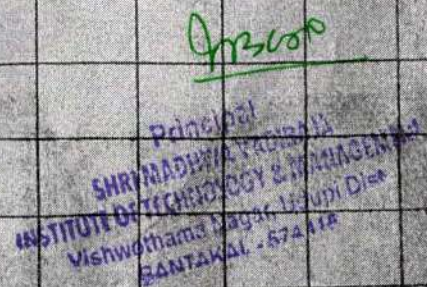 Principal
SHRI MADHWA VADIRAJA
INSTITUTE OF TECHNOLOGY & MANAGEMENT
Vishwothama Nagar, Udupi Dist
BANTAKAL - 574115